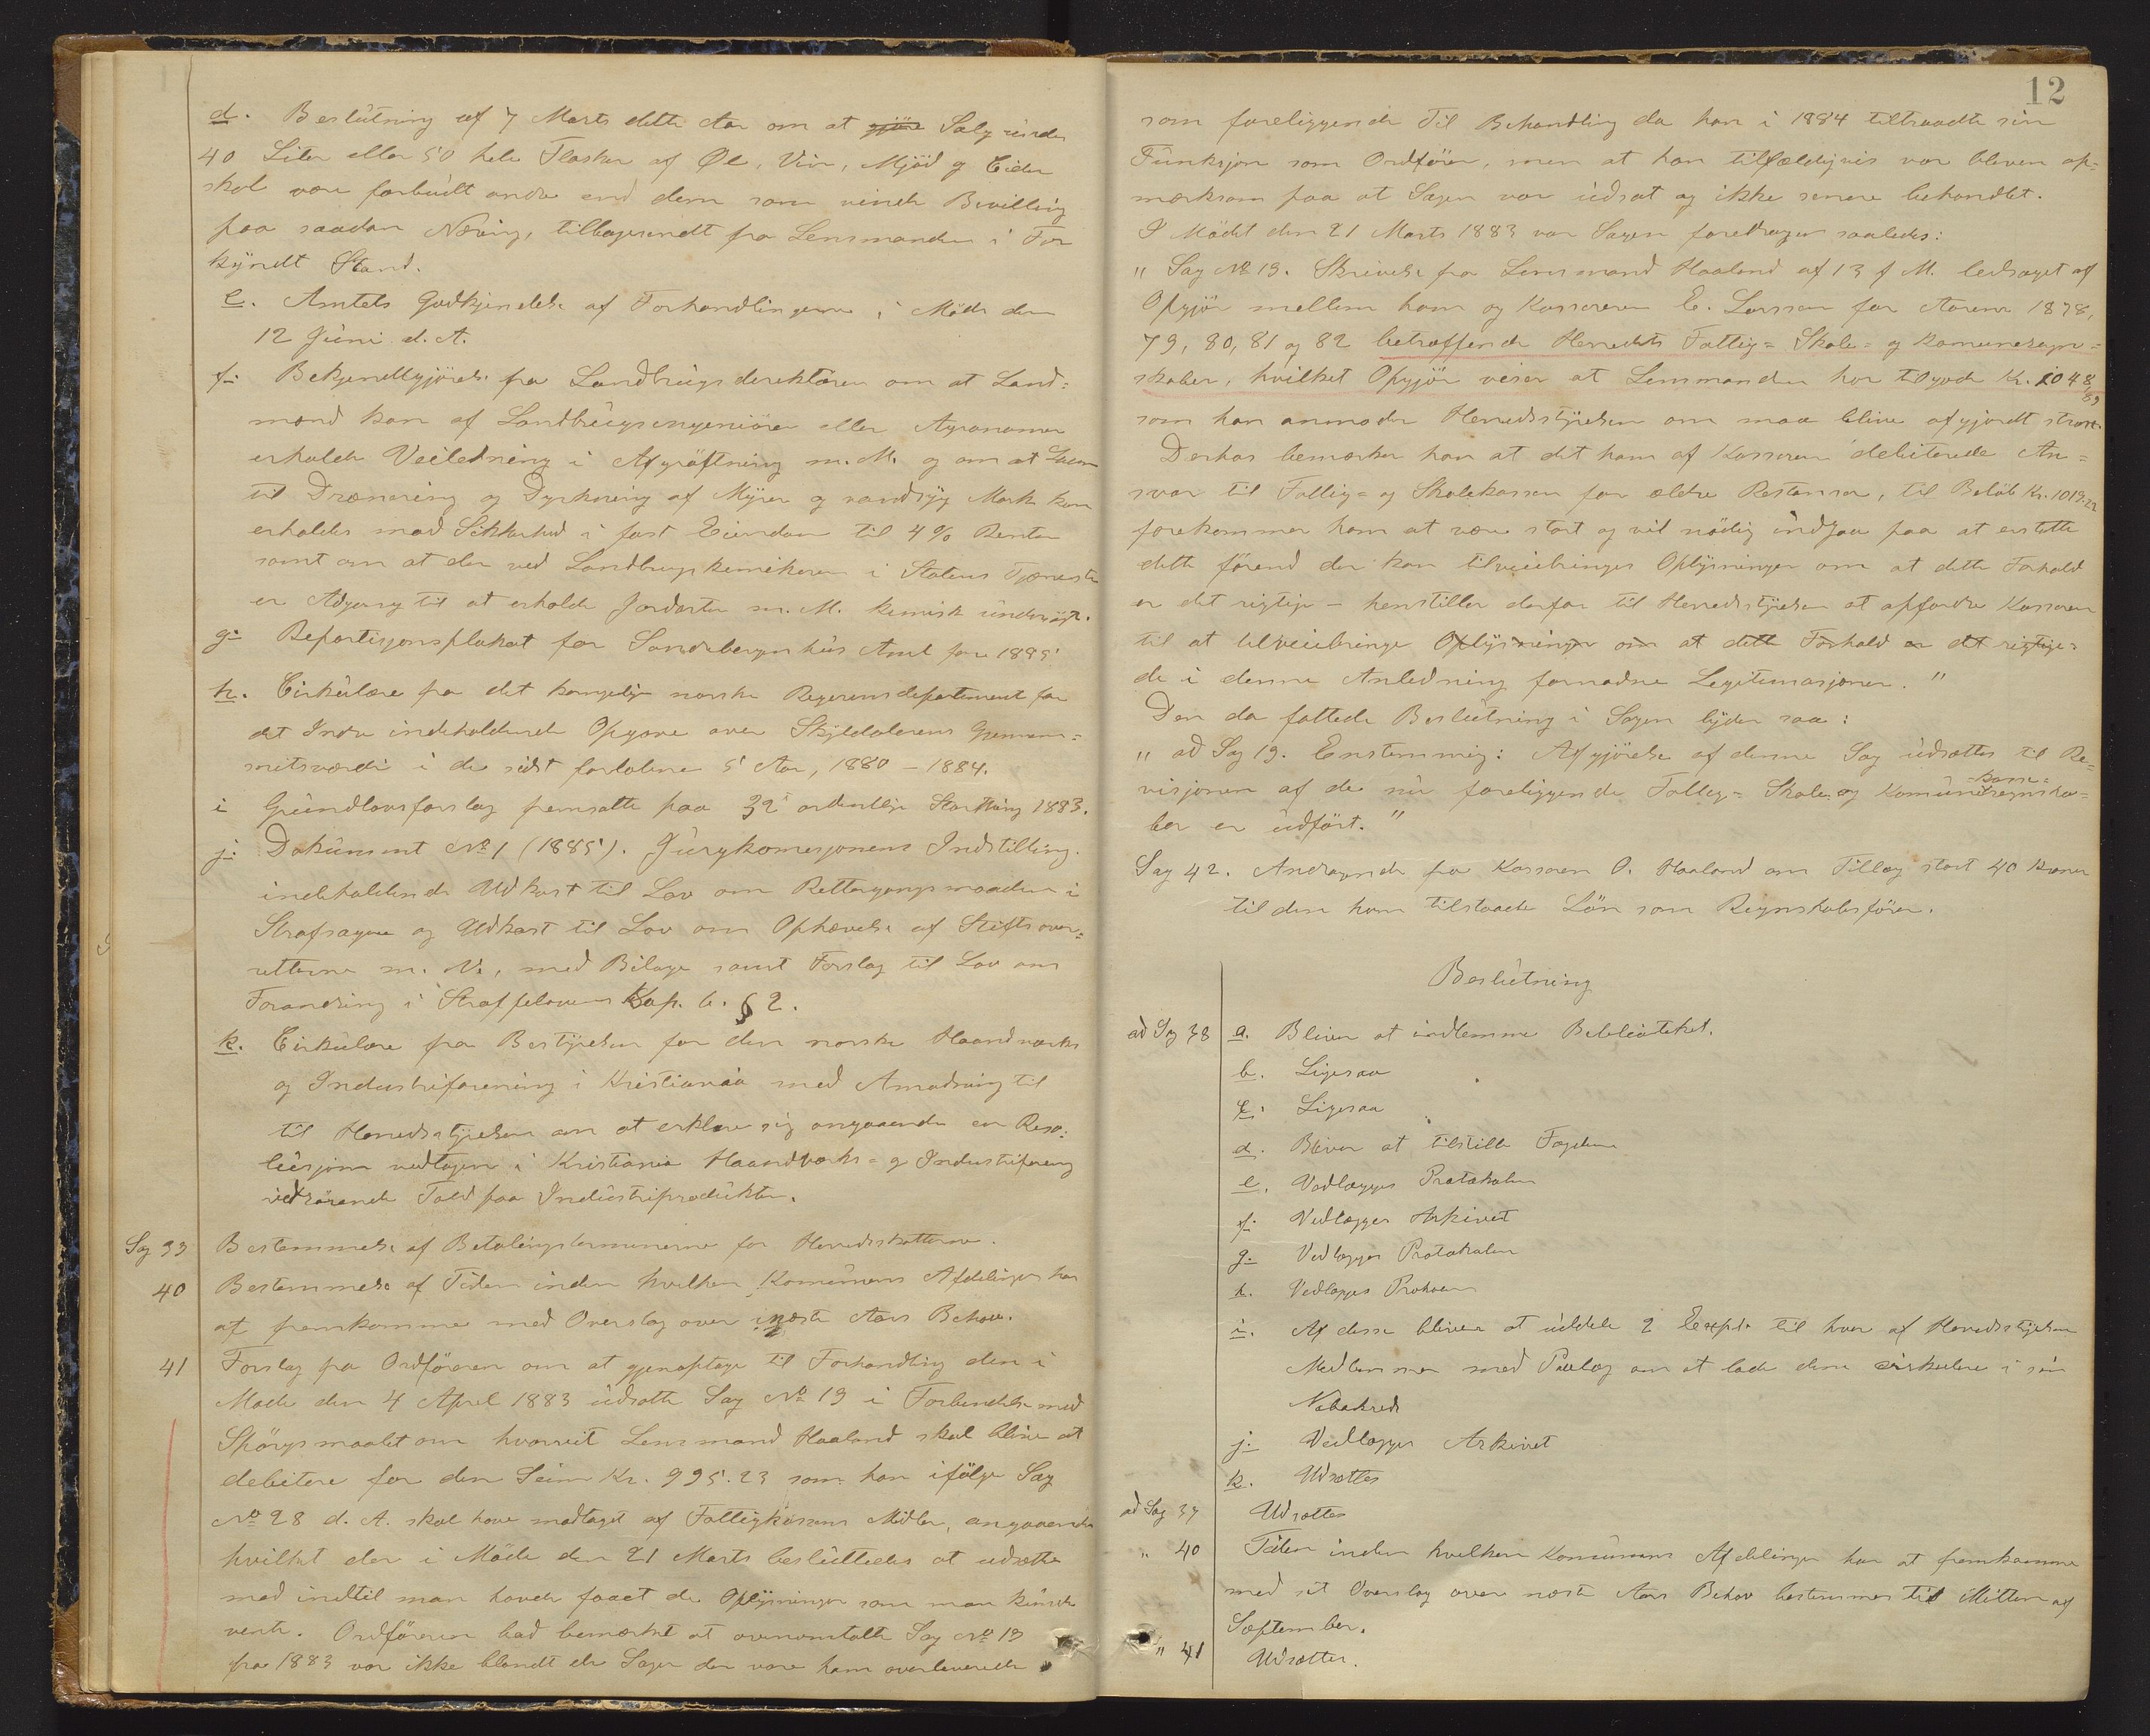 d. Beslutning af 7 Marts dette Aar om at gjöre Salg under
40 Liter eller 50 hele Flasker af Øl, Vin, Mjöd og Cider
skal være forbudt andre end dem som vinde Bevilling
paa saadan Næring, tilbagesendt fra Lensmanden i For
kyndt Stand.
e. Amtets Godkjendelse af Forhandlingerne i Möde den
12 Juni d. A.
f. Bekjendtgjörelse fra Landbrugsdirektören om at Land=
mænd kan af Landbrugsingeniörer eller Agronomer
erholde Veiledning i Afgröftning m. M. og om at Laan
til Drænering og Dyrkning af Myrer og vandsyg Mark kan
erholdes mod Sikkerhed i fast Eiendom til 4 % Renter
samt om at der ved Landbrugskemikeren i Statens Tjeneste
er Adgang til at erholde Jordarter m. M. kemisk undersögt.
g. Repartisjonsplakat for Söndrebergenhus Amt for 1885
h. Cirkulære fra det kongelige norske Regjerensdepartement for
det Indre indeholdende Opgave over Skylddalerens Gjennem=
snitsværdi i de sidst forløbne 5 Aar, 1880 - 1884.
i Grundlovsforslag fremsatte paa 32 ordentlige Storthing 1883.
j. Dokument No 1 (1885). Jurykomisjonens Indstilling.
indeholdende Udkast til Lov om Rettergangsmaaden i
Strafsager og Udkast til Lov om Ophævelse af Stiftsover=
retterne m. V., med Bilage samt Forslag til Lov om
Forandring i Straffelovens Kap. 6. § 2.
k. Cirkulære fra Bestyrelsen for den norske Haandværks
og Industriforening i Kristiania med Anmodning til
til Herredsstyrelsen om at erklære sig angaaende en Reso=
lusjon vedtagen i Kristiania Haandværks= og Industriforening
vedrörende Told paa Industriprodukter.
Sag 39 Bestemmelse af Betalingsterminerne for Herredsskatterne.
40 Bestemmelse af Tiden inden hvilken Komunens Afdelinger har
at fremkomme med Overslag over næste Aars Behov.
41 Forslag fra Ordföreren om at gjenoptage til Forhandling den i
Møde den 4 April 1883 udsatte Sag No 19 i Forbindelse med
Spörgsmaalet om hvorvit Lensmand Haaland skal blive at
debitere for den Sum Kr. 995.23 som han ifölge Sag
No 28 d. A. skal have modtaget af Fattigkassens Midler, angaaende
hvilket der i Möde den 21 Marts besluttedes at udsætte
med indtil man havde faaet de Oplysninger som man kunde
vente. Ordföreren bad bemærket at ovenomtalte Sag No 19
fra 1883 var ikke blandt de Sager der vare ham overleverede
12
som foreliggende til Behandling da han i 1884 tiltraadte sin
Funksjon som Ordförer, men at han tilfældigvis var bleven op=
mærksom paa at Sagen var udsat og ikke senere behandlet.
I Mödet den 21 Marts 1883 var Sagen foredragen saaledes:
" Sag No 19. Skrivelse fra Lensmand Haaland af 13 f M. ledsaget af
Opgjör mellem ham og Kassereren E. Larssen for Aarene 1878,
79, 80, 81 og 82 betræffende Herredets Fattig= Skole= og Komuneregn=
skaber, hvilket Opgjör viser at Lensmanden har tilgode Kr. 1048,89
som han anmoder Herredsstyrelsen om maa blive afgjordt strax.
Derhos bemærker han at det ham af Kasseren debiterede An=
svar til Fattig= og Skolekassen for ældre Restanser, til Belöb Kr. 1019.22
forekommer ham at være stort og vil nödig indgaa paa at erstatte
dette förend der kan tilveiebringes Oplysninger om at dette Forhold
er det rigtige - henstiller derfor til Herredsstyrelsen at opfordre Kasseren
til at tilveiebringe Oplysninger om at dette Forhold er det rigtige=
de i denne Anledning fornødne Legitimasjoner. "
Den da fattede Beslutning i Sagen lyder saa:
" ad Sag 19. Enstemmig: Afgjörelse af denne Sag udsættes til Re=
visjonen af de nu foreliggende Fattig= Skole og Komunekasse=regnska=
ber er udfört. "
Sag 42. Andragende fra Kasseren O. Haaland om Tillæg stort 40 Kroner
til den ham tilstaaede Lön som Regnskabsförer.
Beslutning
ad Sag 38 a. Bliver at indlemme Bibliotheket.
b. Ligesaa
c. Ligesaa
d. Bliver at tilstille Fogden
e. Vedlægges Protokolen
f. Vedlægges Arkivet
g. Vedlægges Protokolen
h. Vedlægges
i. Af disse bliver at uddele 2 Exepl. til hver af Herredsstyrelsens
Medlemmer med Paalæg om at lade dem cirkulere i sin
Nabokreds
j. Vedlægges Arkivet
k. Udsættes
ad Sag 39 Udsættes
" 40 Tiden inden hvilken Komunens Afdelinger har at fremkomme
med sit Overslag over næste Aars Behov bestemmes til Mitten af
September.
" 41 Udsættes.